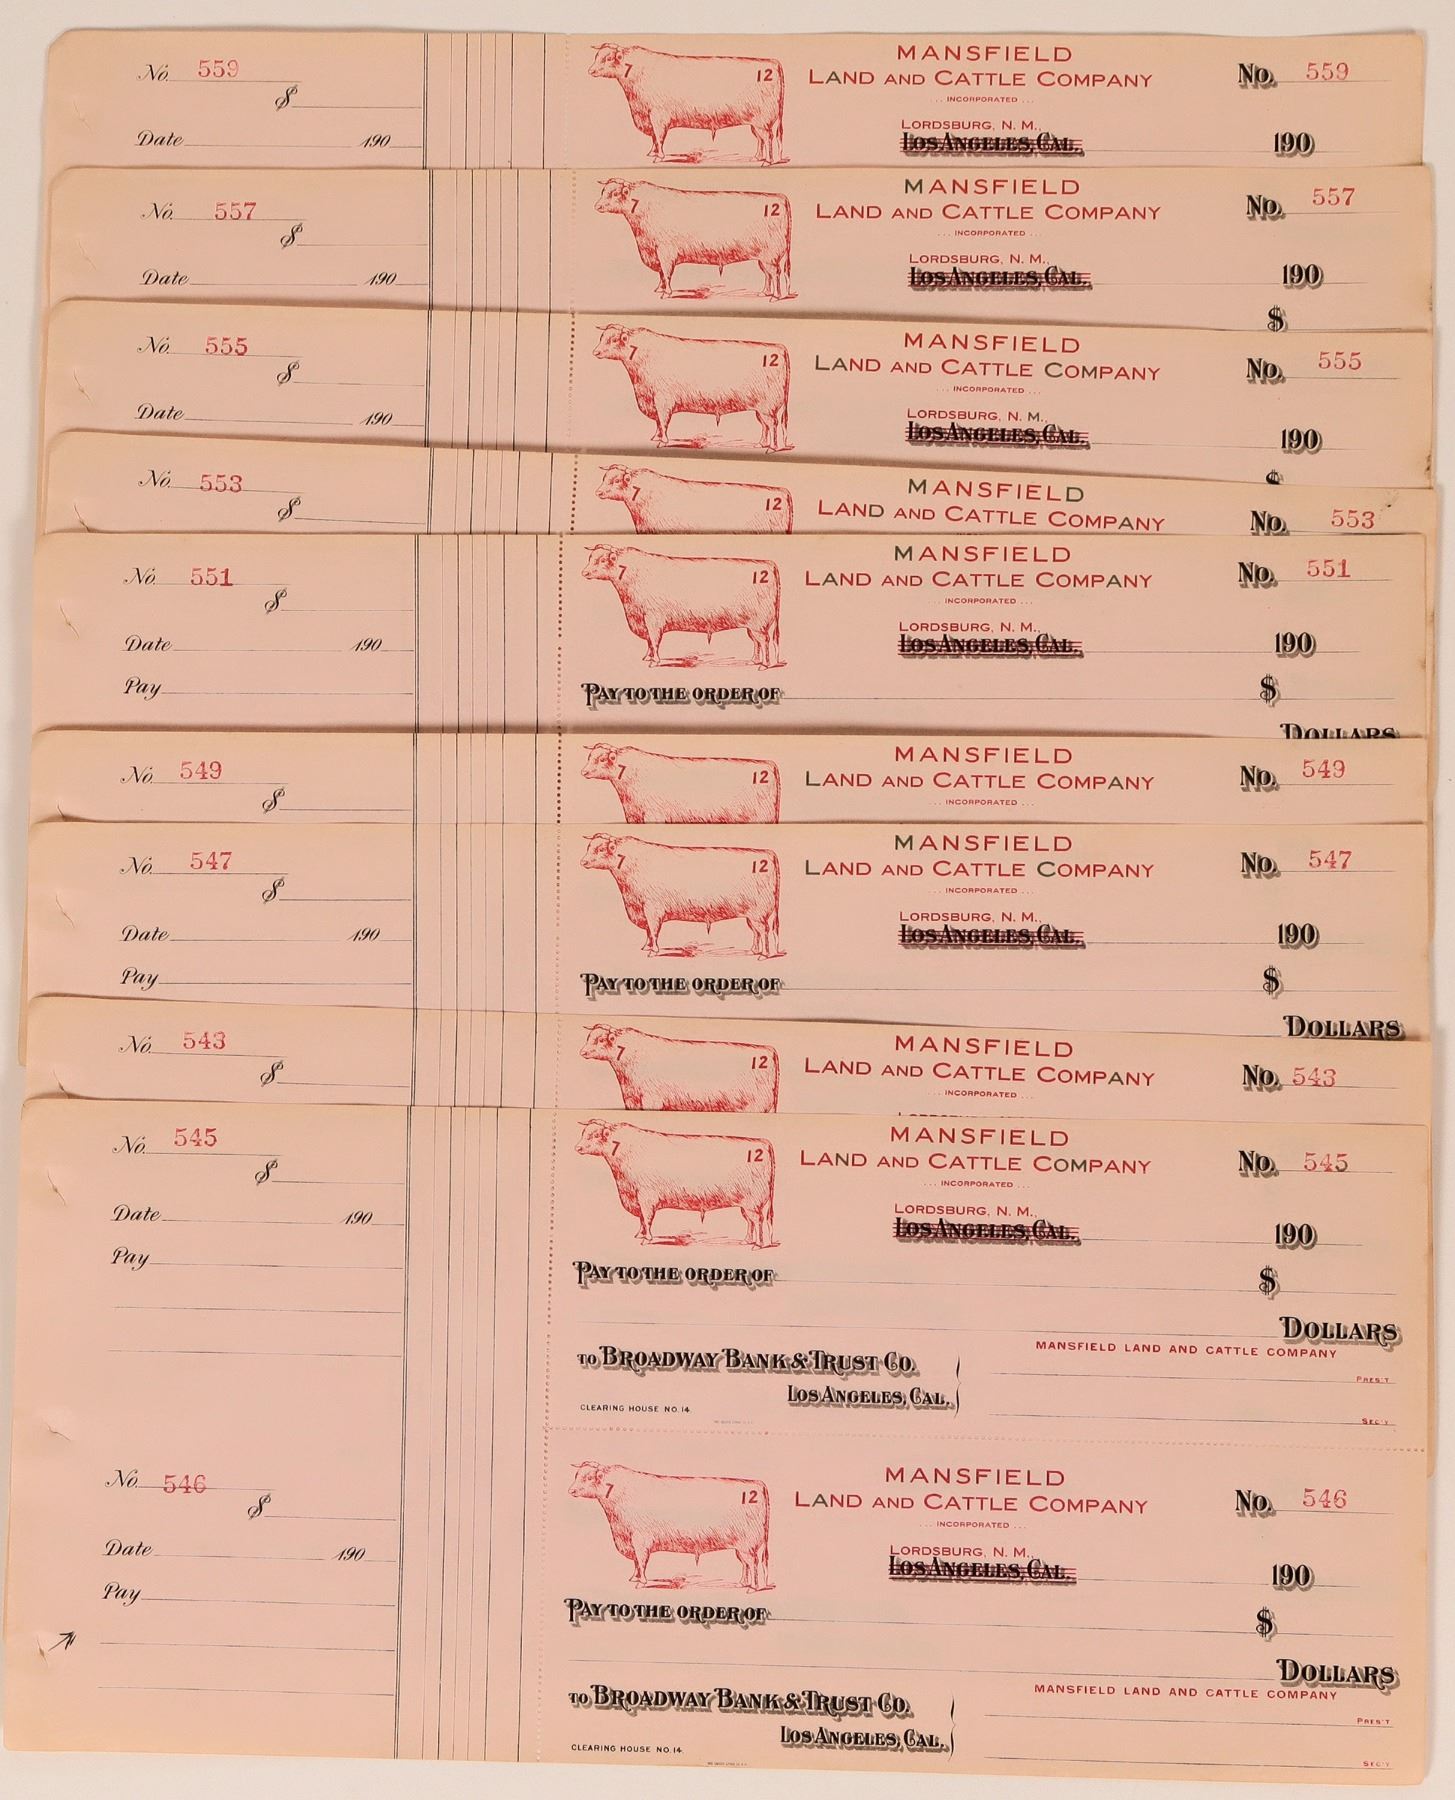 No. 559
$
Date 190
7 12
MANSFIELD
LAND AND CATTLE COMPANY
... INCORPORATED ...
LORDSBURG, N. M.,
LOS ANGELES, CAL.
No. 559
190
No. 557
$
Date 190
7 12
MANSFIELD
LAND AND CATTLE COMPANY
... INCORPORATED ...
LORDSBURG, N. M.,
LOS ANGELES, CAL.
No. 557
190
$
No. 555
$
Date 190
7 12
MANSFIELD
LAND AND CATTLE COMPANY
... INCORPORATED ...
LORDSBURG, N. M.,
LOS ANGELES, CAL.
No. 555
190
$
No. 553
$
7 12
MANSFIELD
LAND AND CATTLE COMPANY
No. 553
No. 551
$
Date 190
Pay
7 12
MANSFIELD
LAND AND CATTLE COMPANY
... INCORPORATED ...
LORDSBURG, N. M.,
LOS ANGELES, CAL.
No. 551
190
PAY TO THE ORDER OF $
DOLLARS
No. 549
$
7 12
MANSFIELD
LAND AND CATTLE COMPANY
... INCORPORATED ...
No. 549
No. 547
$
Date 190
Pay
7 12
MANSFIELD
LAND AND CATTLE COMPANY
... INCORPORATED ...
LORDSBURG, N. M.,
LOS ANGELES, CAL.
No. 547
190
PAY TO THE ORDER OF $
DOLLARS
No. 543
$
7 12
MANSFIELD
LAND AND CATTLE COMPANY
... INCORPORATED ...
No. 543
No. 545
$
Date 190
Pay
7 12
MANSFIELD
LAND AND CATTLE COMPANY
... INCORPORATED ...
LORDSBURG, N. M.,
LOS ANGELES, CAL.
No. 545
190
PAY TO THE ORDER OF $
DOLLARS
MANSFIELD LAND AND CATTLE COMPANY
TO BROADWAY BANK & TRUST CO.
LOS ANGELES, CAL.
PRES'T
CLEARING HOUSE NO. 14.
SEC'Y
No. 546
$
Date 190
Pay
7 12
MANSFIELD
LAND AND CATTLE COMPANY
... INCORPORATED ...
LORDSBURG, N. M.,
LOS ANGELES, CAL.
No. 546
190
PAY TO THE ORDER OF $
DOLLARS
MANSFIELD LAND AND CATTLE COMPANY
TO BROADWAY BANK & TRUST CO.
LOS ANGELES, CAL.
PRES'T
CLEARING HOUSE NO. 14.
SEC'Y